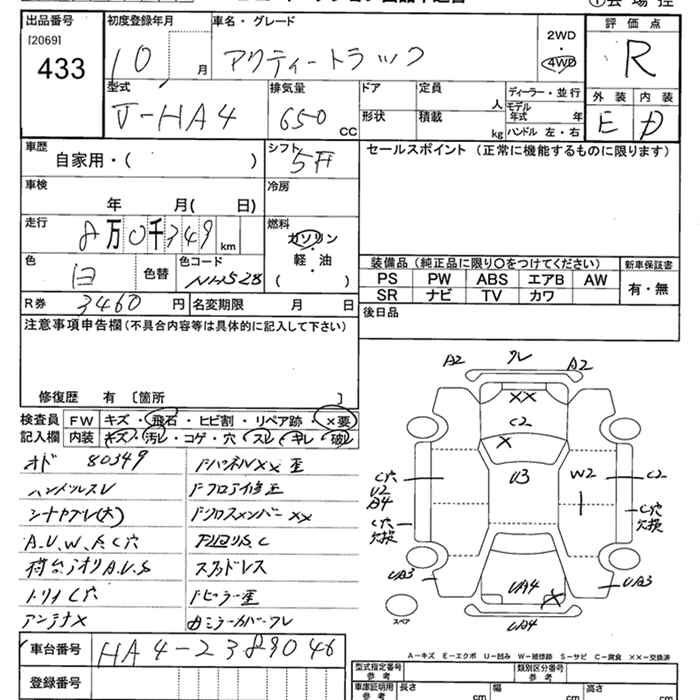 出品番号
[2069]
433
初度登録年月
10 月
車名・グレード
アクティートラック
2WD
・
4WD
評価点
R
型式
V-HA4
排気量
650 CC
ドア
定員
人
形状
積載
kg
ディーラー・並行
モデル年式 年
ハンドル 左・右
外装
内装
E
D
車歴
自家用・( )
シフト
5F
車検
年 月( 日)
冷房
走行
8万0千349 km
燃料
ガソリン
・
軽油
・
( )
色
白
色替
色コード
NH528
R券 3460 円
名変期限 月 日
セールスポイント (正常に機能するものに限ります)
装備品(純正品に限り〇をつけてください)
新車保証書
PS PW ABS エアB AW
SR ナビ TV カワ
有・無
後日品
注意事項申告欄(不具合内容等は具体的に記入して下さい)
修復歴 有 [箇所 ]
検査員記入欄
FW キズ・飛石・ヒビ割・リペア跡・×要
内装 キズ・汚レ・コゲ・穴・スレ・キレ・破レ
オド 80349
ハンドルスレ
シートヤブレ(大)
A.U.W.F.C穴
荷台アオリA.U.S
トリイC穴
アンテナX
FパネルXX歪
Fフロア修正
FクロスメンバーXX
下回りS.C
スペアタドレス
Fピラー歪
ミラーカバーワレ
A2 ワレ A2
XX
C2
X
U3
W2
C穴
U2
A4
C穴
欠損
C2
C穴
欠損
UA3
UA4
X
UA3
UA4
スペア
A－キズ E－エクボ U－凹み W－補修跡 S－サビ C－腐食 ××－交換済
車台番号
HA4-2389046
登録番号
型式指定番号
参考
類別区分番号
参考
車庫証明用
参考
長さ cm
幅 cm
高さ cm